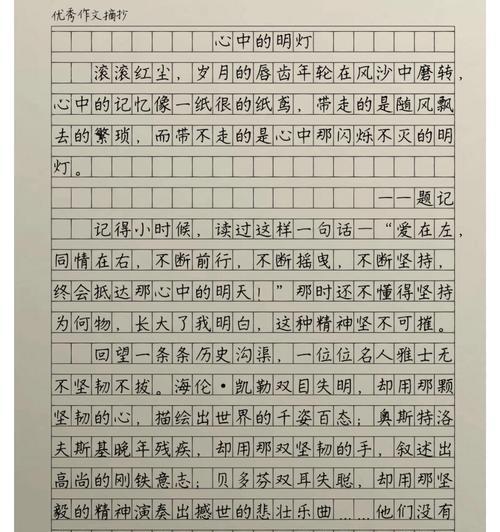 优秀作文摘抄
心中的明灯
滚滚红尘，岁月的唇齿年轮在风沙中磨转，
心中的记忆像一纸很的纸鸢，带走的是随风飘
去的繁琐，而带不走的是心中那闪烁不灭的明
灯。
——题记
记得小时候，读过这样一句话—“爱在左，
同情在右，不断前行，不断摇曳，不断坚持，
终会抵达那心中的明天！”那时还不懂得坚持
为何物，长大了我明白，这种精神坚不可摧。
回望一条条历史沟渠，一位位名人雅士无
不坚韧不拔。海伦·凯勒双目失明，却用那颗
坚韧的心，描绘出世界的千姿百态；奥斯特洛
夫斯基晚年残疾，却用那双坚韧的手，叙述出
高尚的刚铁意志；贝多芬双耳失聪，却用那坚
毅的精神演奏出撼世的悲壮乐曲……他们没有